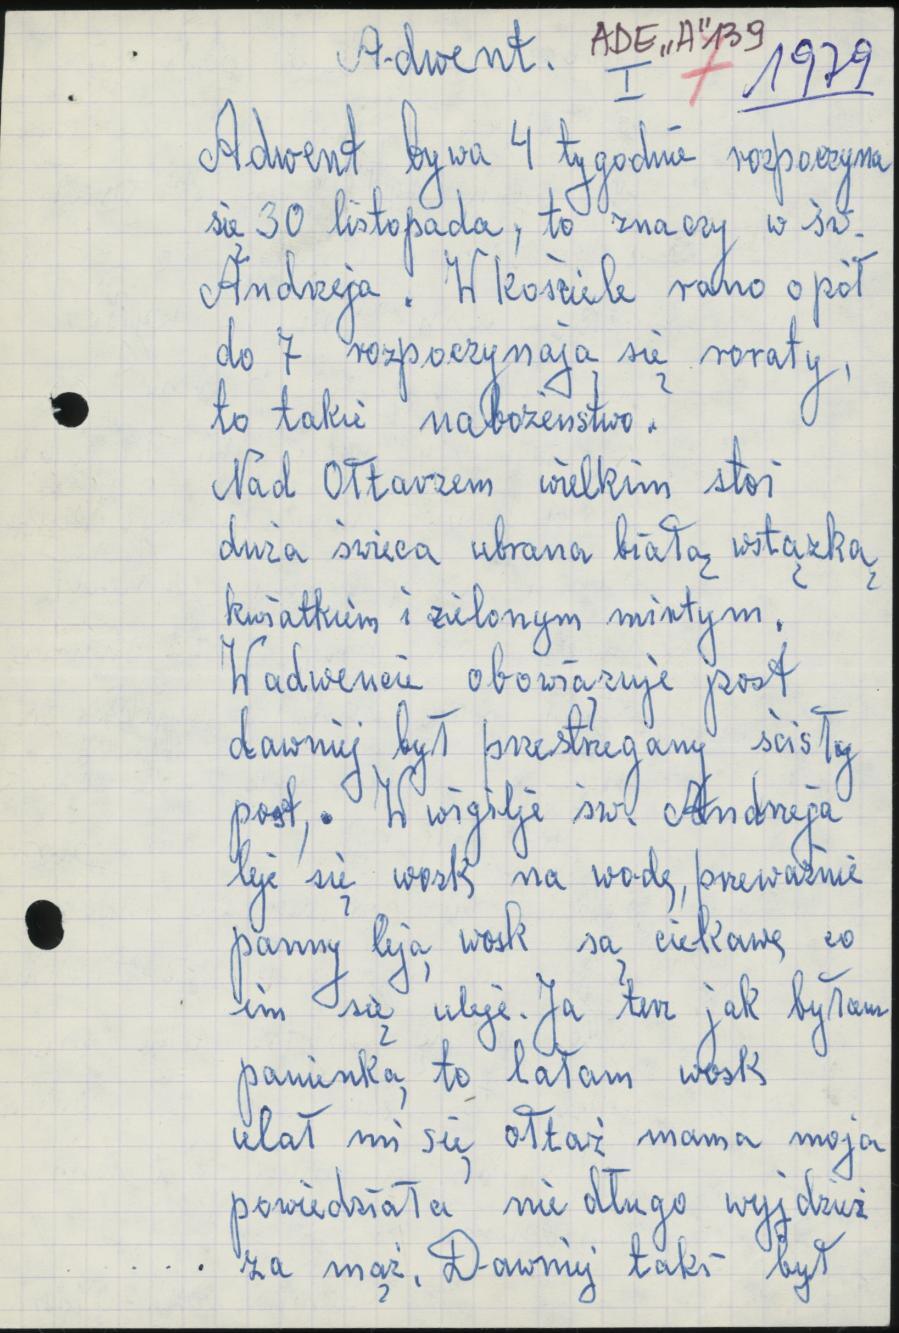 Adwent. ADE„A"139
I 1979
Adwent bywa 4 tygodnie rozpoczyna
się 30 listopada, to znaczy w św.
Andrzeja. W kościele rano o pół
do 7 rozpoczynają się roraty,
to takie nabożeństwo.
Nad Ołtarzem wielkim stoi
duża świeca ubrana białą wstązką
kwiatkiem i zielonym mirtym.
W adwencie obowiązuje post
dawniej był przestrzegany ścisły
post,. W wigilje św. Andrzeja
leje się wosk na wodę, przeważnie
panny leją wosk są ciekawę co
im się uleje. Ja terz jak byłam
panienką, to lałam wosk
ulał mi się ołtaż mama moja
powiedziała nie długo wyjdziesz
za mąż. Dawniej taki był